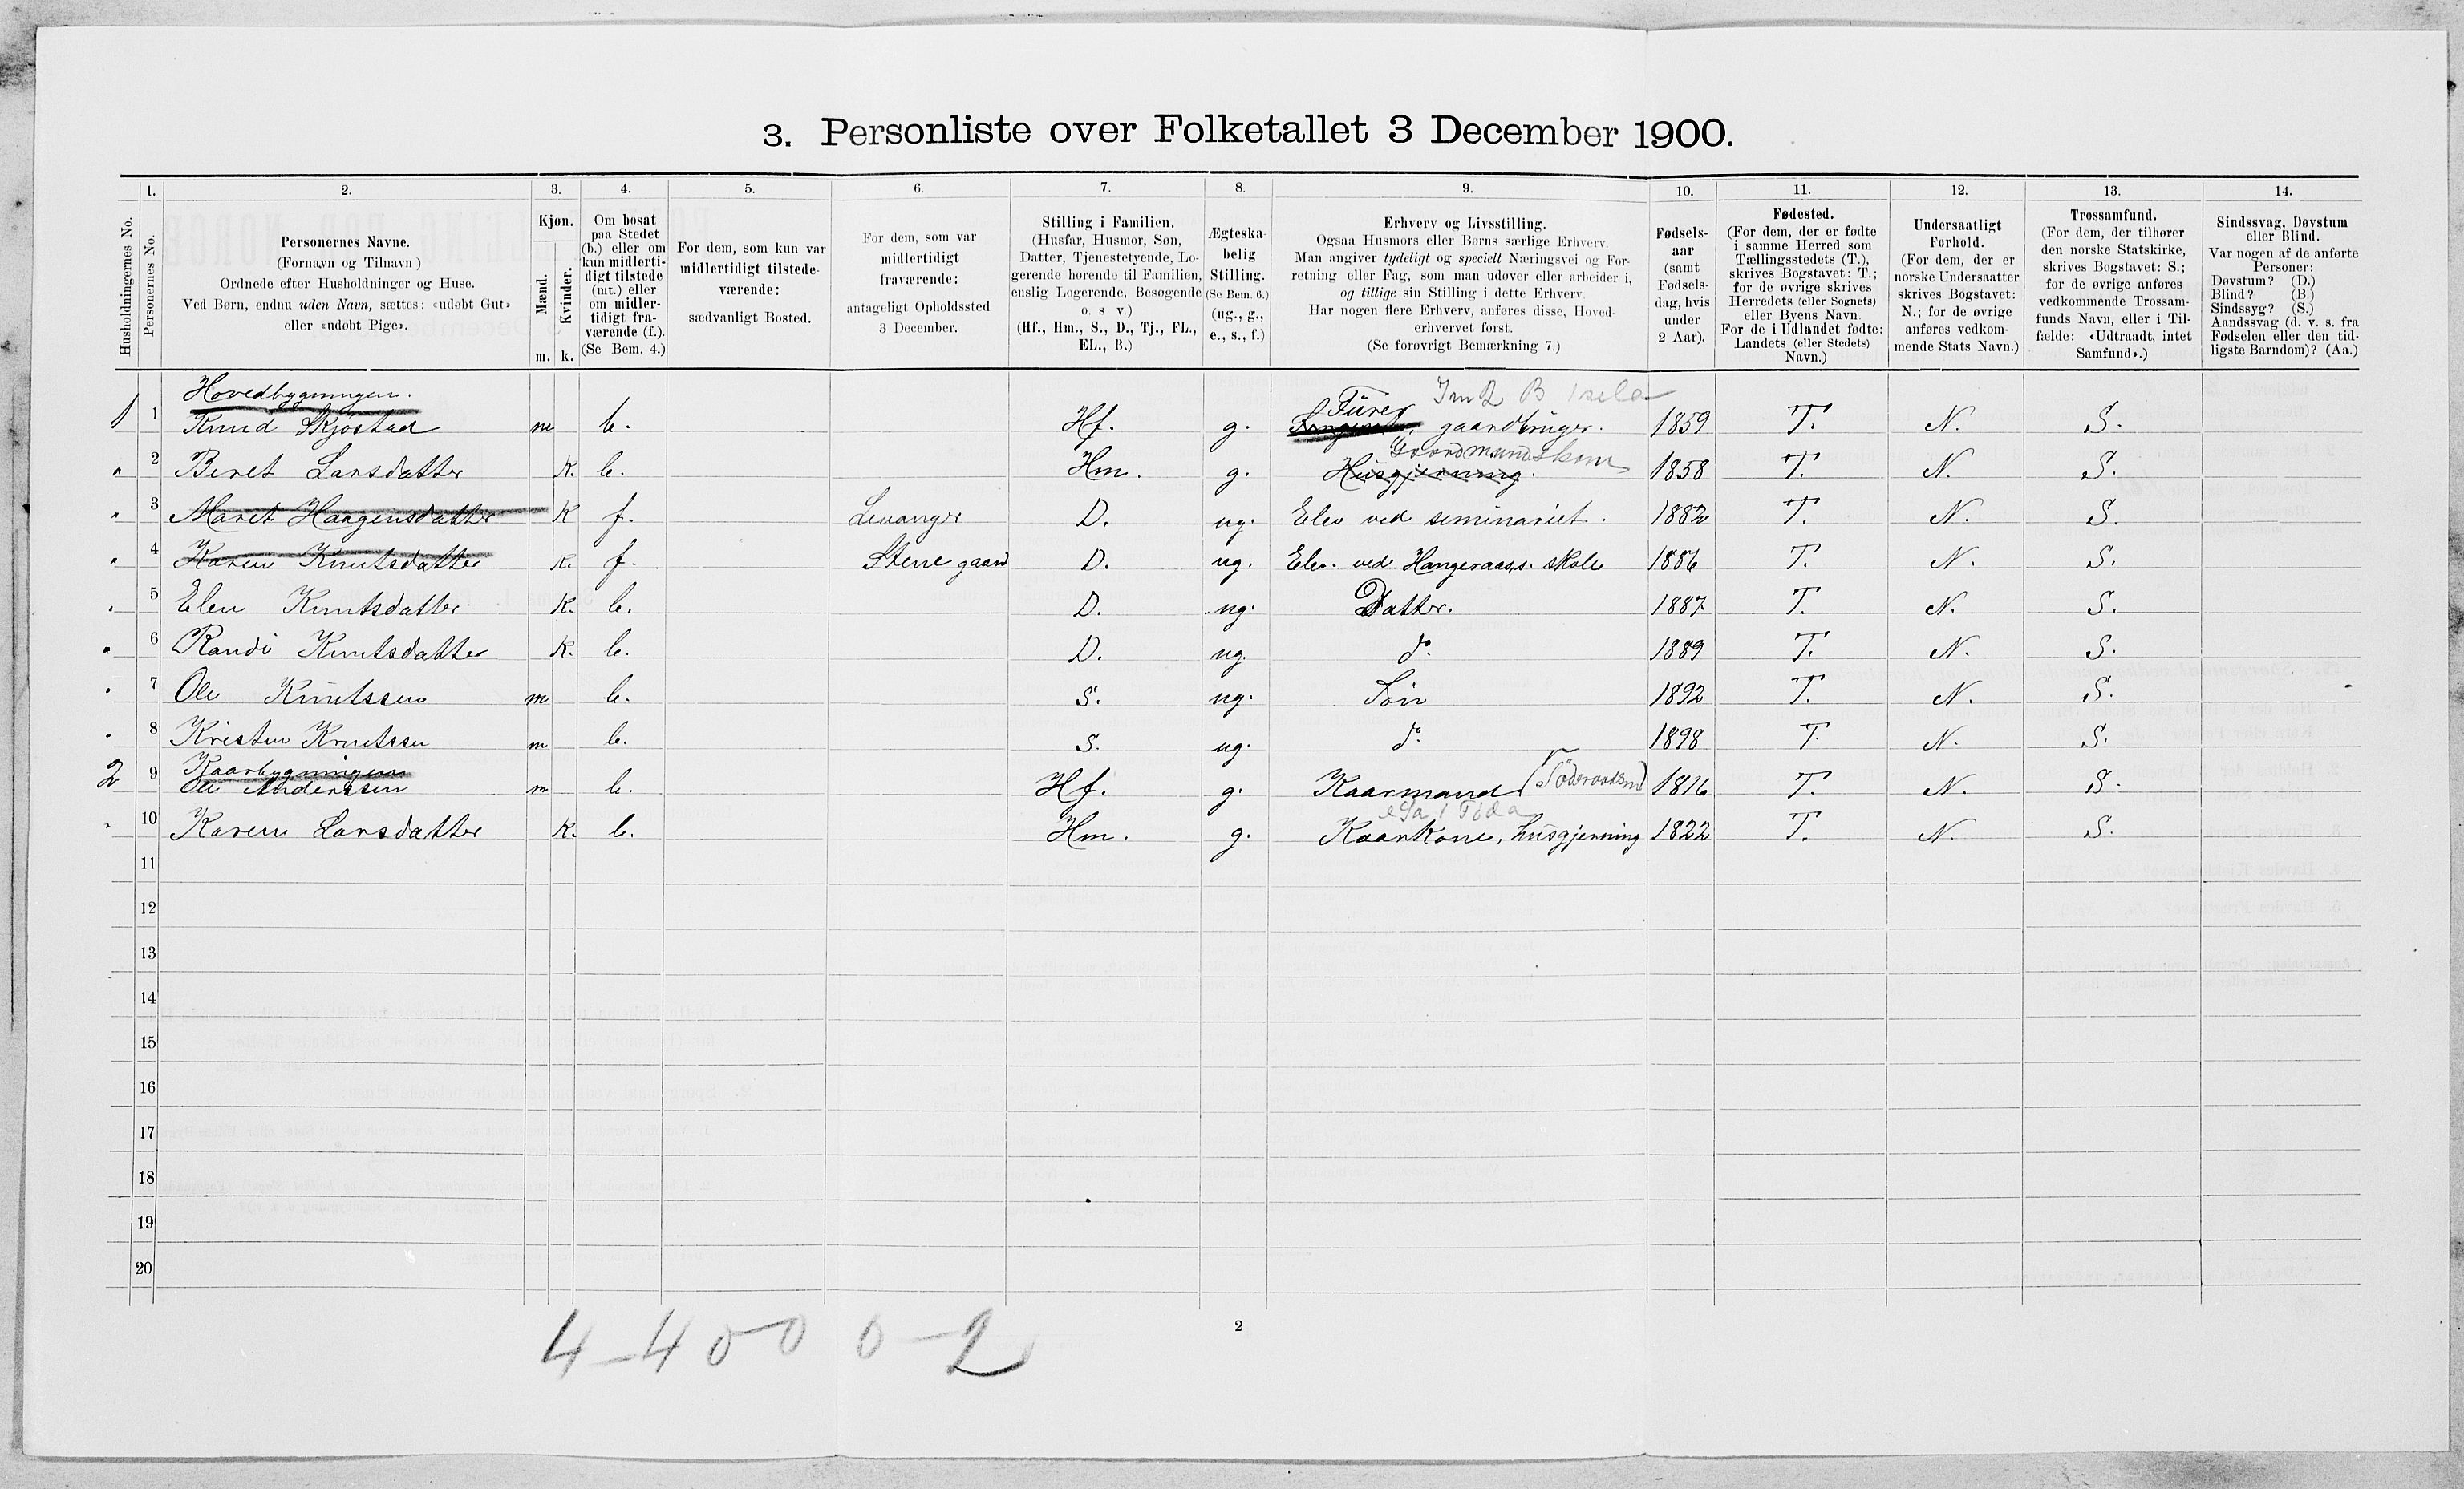 3. Personliste over Folketallet 3 December 1900.
Husholdningernes No.
1. 2. 3. 4. 5. 6. 7. 8. 9. 10. 11. 12. 13. 14.
Personernes No.
Personernes Navne.
(Fornavn og Tilnavn)
Ordnede efter Husholdninger og Huse.
Ved Børn, endnu uden Navn, sættes: «udøbt Gut»
eller «udøbt Pige».
Kjøn.
Mænd.
Kvinder.
m. k.
Om bosat
paa Stedet
(b.) eller om
kun midlerti-
digt tilstede
(mt.) eller
om midler-
tidigt fra-
værende (f.).
(Se Bem. 4.)
For dem, som kun var
midlertidigt tilstede-
værende:
sædvanligt Bosted.
For dem, som var
midlertidigt
fraværende:
antageligt Opholdssted
3 December.
Stilling i Familien.
(Husfar, Husmor, Søn,
Datter, Tjenestetyende, Lo-
gerende hørende til Familien,
enslig Logerende, Besøgende
o. s. v.)
(Hf., Hm., S., D., Tj., FL.,
EL., B.)
Ægteska-
belig
Stilling.
(Se Bem. 6.)
(ug., g.,
e., s., f.)
Erhverv og Livsstilling.
Ogsaa Husmors eller Børns særlige Erhverv.
Man angiver tydeligt og specielt Næringsvei og For-
retning eller Fag, som man udøver eller arbeider i,
og tillige sin Stilling i dette Erhverv.
Har nogen flere Erhverv, anføres disse, Hoved-
erhvervet først.
(Se forøvrigt Bemærkning 7.)
Fødsels-
aar
(samt
Fødsels-
dag, hvis
under
2 Aar).
Fødested.
(For dem, der er fødte
i samme Herred som
Tællingsstedets (T.),
skrives Bogstavet: T.;
for de øvrige skrives
Herredets (eller Sognets)
eller Byens Navn.
For de i Udlandet fødte:
Landets (eller Stedets)
Navn.)
Undersaatligt
Forhold.
(For dem, der er
norske Undersaatter
skrives Bogstavet:
N.; for de øvrige
anføres vedkom-
mende Stats Navn.)
Trossamfund.
(For dem, der tilhører
den norske Statskirke,
skrives Bogstavet: S.;
for de øvrige anføres
vedkommende Trossam-
funds Navn, eller i Til-
fælde: «Udtraadt, intet
Samfund».)
Sindssvag, Døvstum
eller Blind.
Var nogen af de anførte
Personer:
Døvstum? (D.)
Blind? (B.)
Sindssyg? (S.)
Aandssvag (d. v. s. fra
Fødselen eller den tid-
ligste Barndom)? (Aa.)
Hovedbygningen.
1 1 Knud Skjøstad m b. Hf. g. gaardbruger. 1859 T. N. S.
Gaardmandskone
" 2 Beret Larsdatter K. b. Hm. g. Husgjerning. 1858 T. N. S.
" 3 Maret Haagensdatter K f. Levanger D. ug. Elev ved seminariet. 1882 T. N. S.
" 4 Karen Knutsdatter K. f. Stene gaard D. ug. Elev. ved skole 1886 T. N. S.
" 5 Elen Knutsdatter K. b. D. ug. Datter. 1887 T. N. S.
" 6 Randi Knutsdatter K. b. D. ug. do. 1889 T. N. S.
" 7 Ole Knutssen m b. S. ug. Søn 1892 T. N. S.
" 8 Kristen Knutssen m b. S. ug. do. 1898 T. N. S.
Kaarbygningen
2 9 Ole Anderssen m b. Hf. g. Kaarmand 1816 T. N. S.
" 10 Karen Larsdatter K. b. Hm. g. Kaarkone, husgjerning 1822 T. N. S.
11
12
13
14
15
16
17
18
19
20
4-400 0-2
2